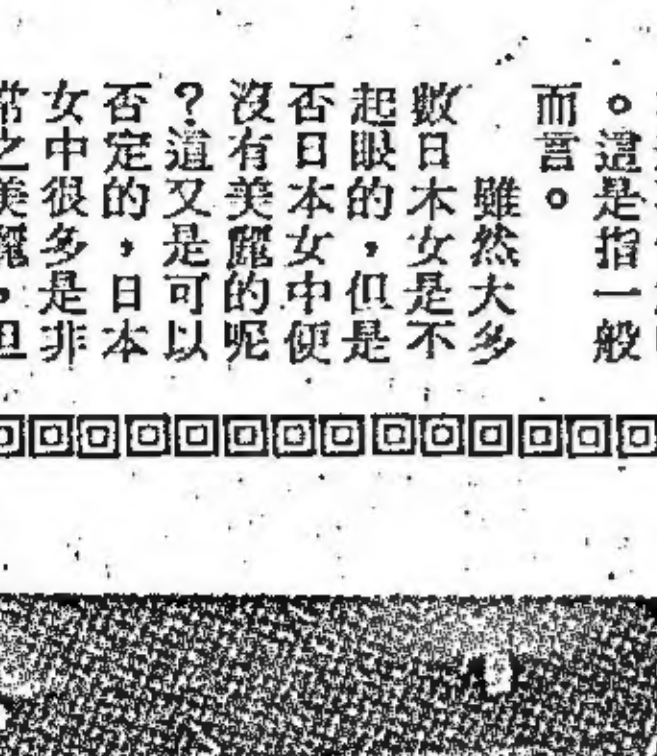 。這是指一般
而言。
雖然大多
數日木女是不
起眼的，但是
否日本女中便
沒有美麗的呢
？道又是可以
否定的，日本
女中很多是非
常之美麗，但